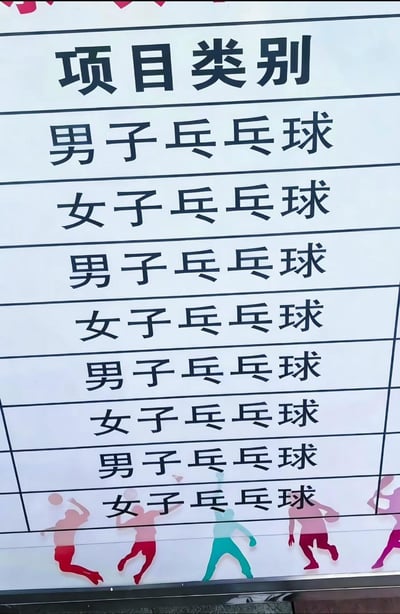 项目类别
男子乓乓球
女子乓乓球
男子乓乓球
女子乓乓球
男子乓乓球
女子乓乓球
男子乓乓球
女子乓乓球